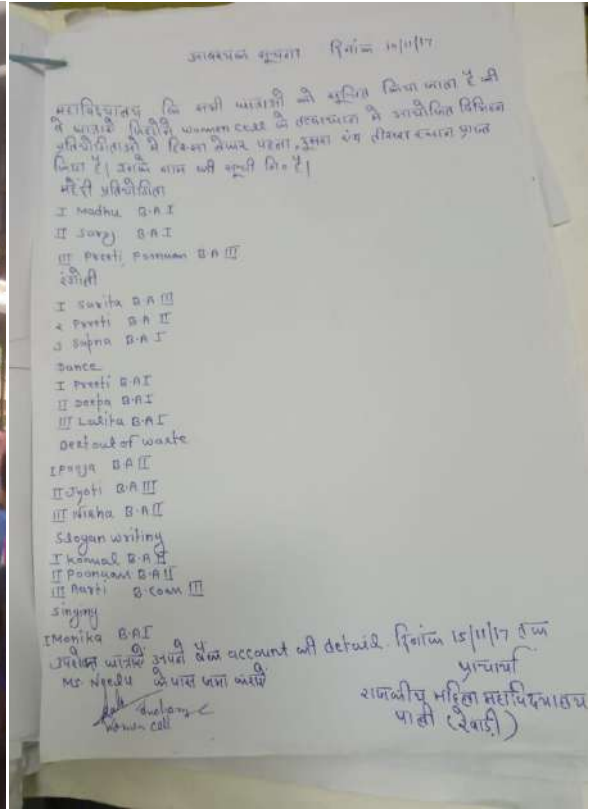 आवश्यक सूचना दिनांक 14/11/17
महाविद्यालय कि सभी छात्राओं को सूचित किया जाता है की
वे छात्राये जिन्होंने women cell के तत्वावधान मे आयोजित विभिन्न
प्रतियोगीताओं मे हिस्सा लेकर पहला, दुसरा एवं तीसरा स्थान प्राप्त
किया है। उनके नाम की सूची निम्न है।
मेहंदी प्रतियोगिता
I Madhu B.A I
II Saroj B.A I
III Preeti, Poonam B.A III
रंगोली
I Sarita B.A III
2 Preeti B.A II
3 Sapna B.A I
Dance
I Preeti B.A I
II Deepa B.A I
III Lalita B.A I
Best out of waste
I Pooja B.A II
II Jyoti B.A III
III Nisha B.A II
Slogan writing
I Komal B.A II
II Poonam B.A II
III Aarti B.com III
Singing
I Monika B.A I
उपरोक्त छात्रायें अपने बैंक account की detail दिनांक 15/11/17 तक
Ms Neelu के पास जमा करायें
प्राचार्या
Incharge
women cell
राजकीय महिला महाविद्यालय
पाली (रेवाड़ी)